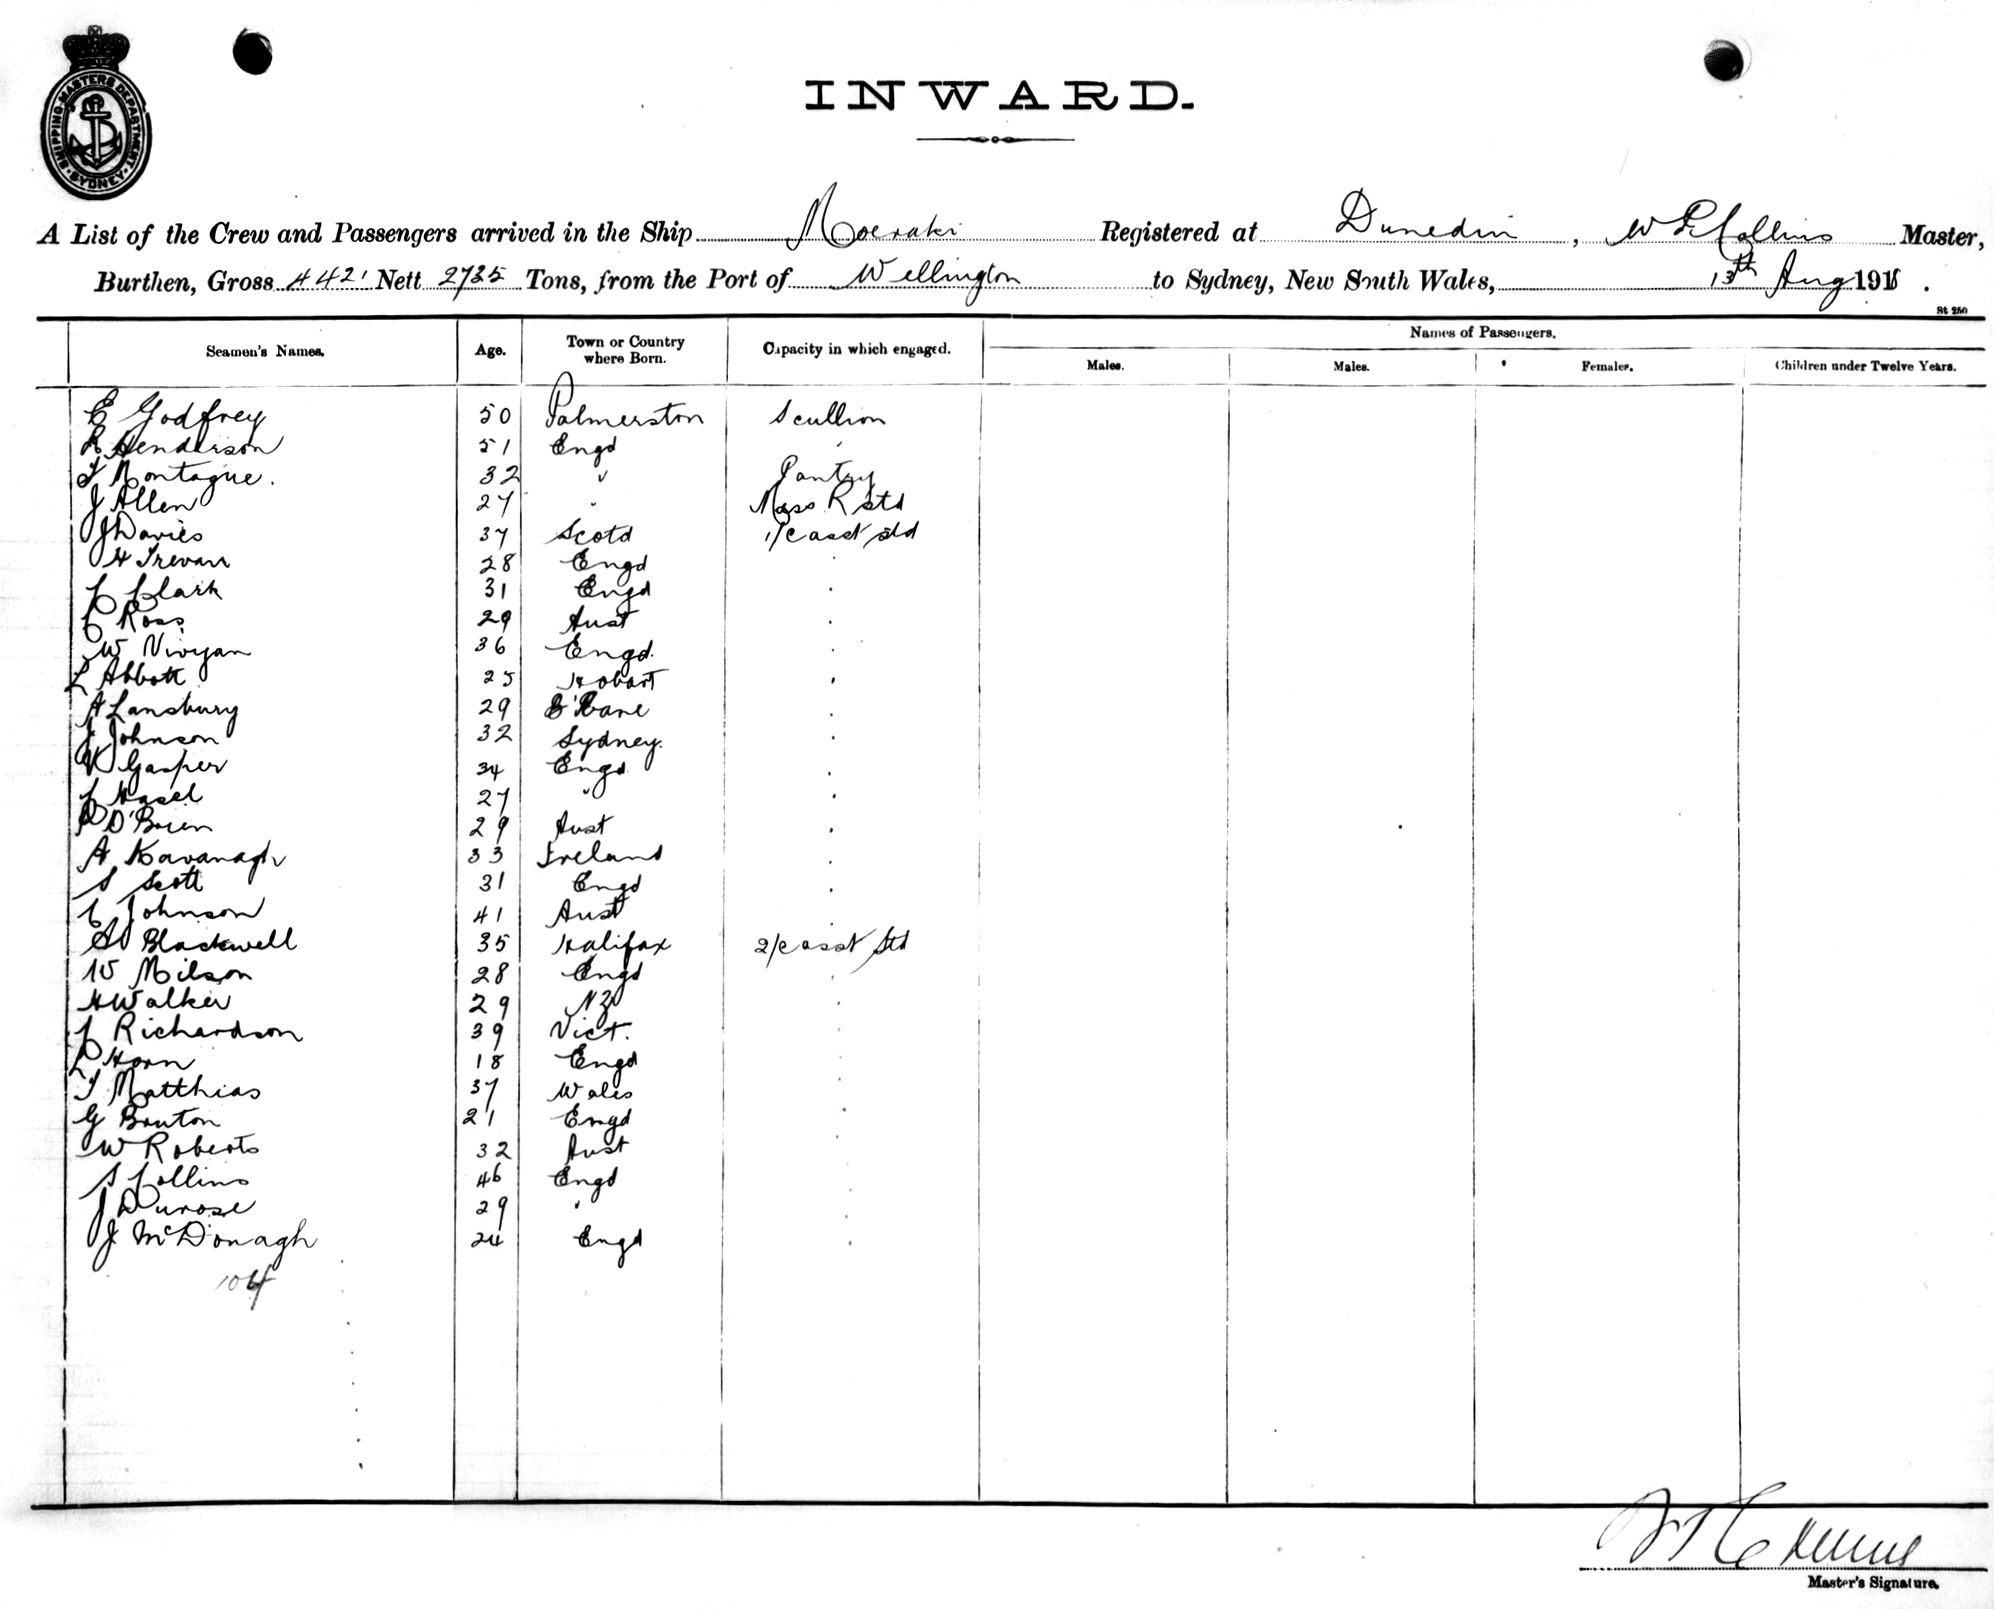 SHIPPING MASTERS DEPARTMENT SYDNEY
INWARD.
A List of the Crew and Passengers arrived in the Ship Moeraki Registered at Dunedin, W Collins Master,
Burthen, Gross 4421 Nett 2735 Tons, from the Port of Wellington to Sydney, New South Wales, 13th Aug 1918.
St 250
Seamen's Names. Age. Town or Country where Born. Capacity in which engaged. Names of Passengers.
Males. Males. Females. Children under Twelve Years.
E Godfrey 50 Palmerston Scullion
R Henderson 51 Engd "
T Montague. 32 " Pantry
J Allen 27 " Mess R std
J Davies 37 Scotd 1/c asst std
H Trevan 28 Engd "
C Clark 31 Engd "
C Ross 29 Aust "
W Vivyan 36 Engd. "
L Abbott 25 Hobart "
A Lansbury 29 B'Bane "
J Johnson 32 Sydney. "
W Gasper 34 Engd "
C Hasel 27 " "
P O'Brien 29 Aust "
A Kavanagh 33 Ireland "
S Scott 31 Engd "
C Johnson 41 Aust "
A Blackwell 35 Halifax 2/c asst Std
W Milson 28 Engd "
H Walker 29 NZ "
C Richardson 39 Vict. "
L Horn 18 Engd "
T Matthias 37 Wales "
G Bruton 21 Engd "
W Roberts 32 Aust "
S Collins 46 Engd "
J Durose 29 " "
J McDonagh 24 Engd "
104
Master's Signature.